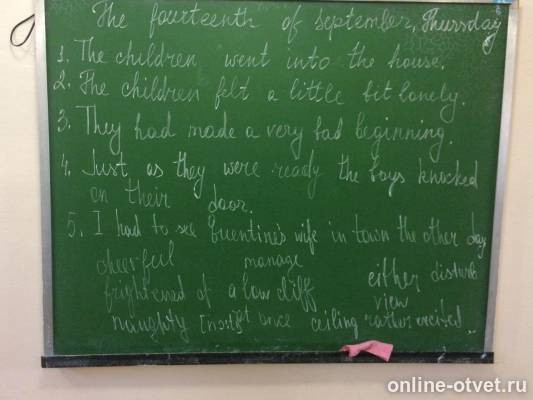 The fourteenth of september, Thursday
1. The children went into the house.
2. The children felt a little bit lonely.
3. They had made a very bad beginning.
4. Just as they were ready the boys knocked
on their door.
5. I had to see Quentine's wife in town the other day
cheerful manage either disturb
frightened of a low cliff view
naughty at once ceiling rather excited
online-otvet.ru